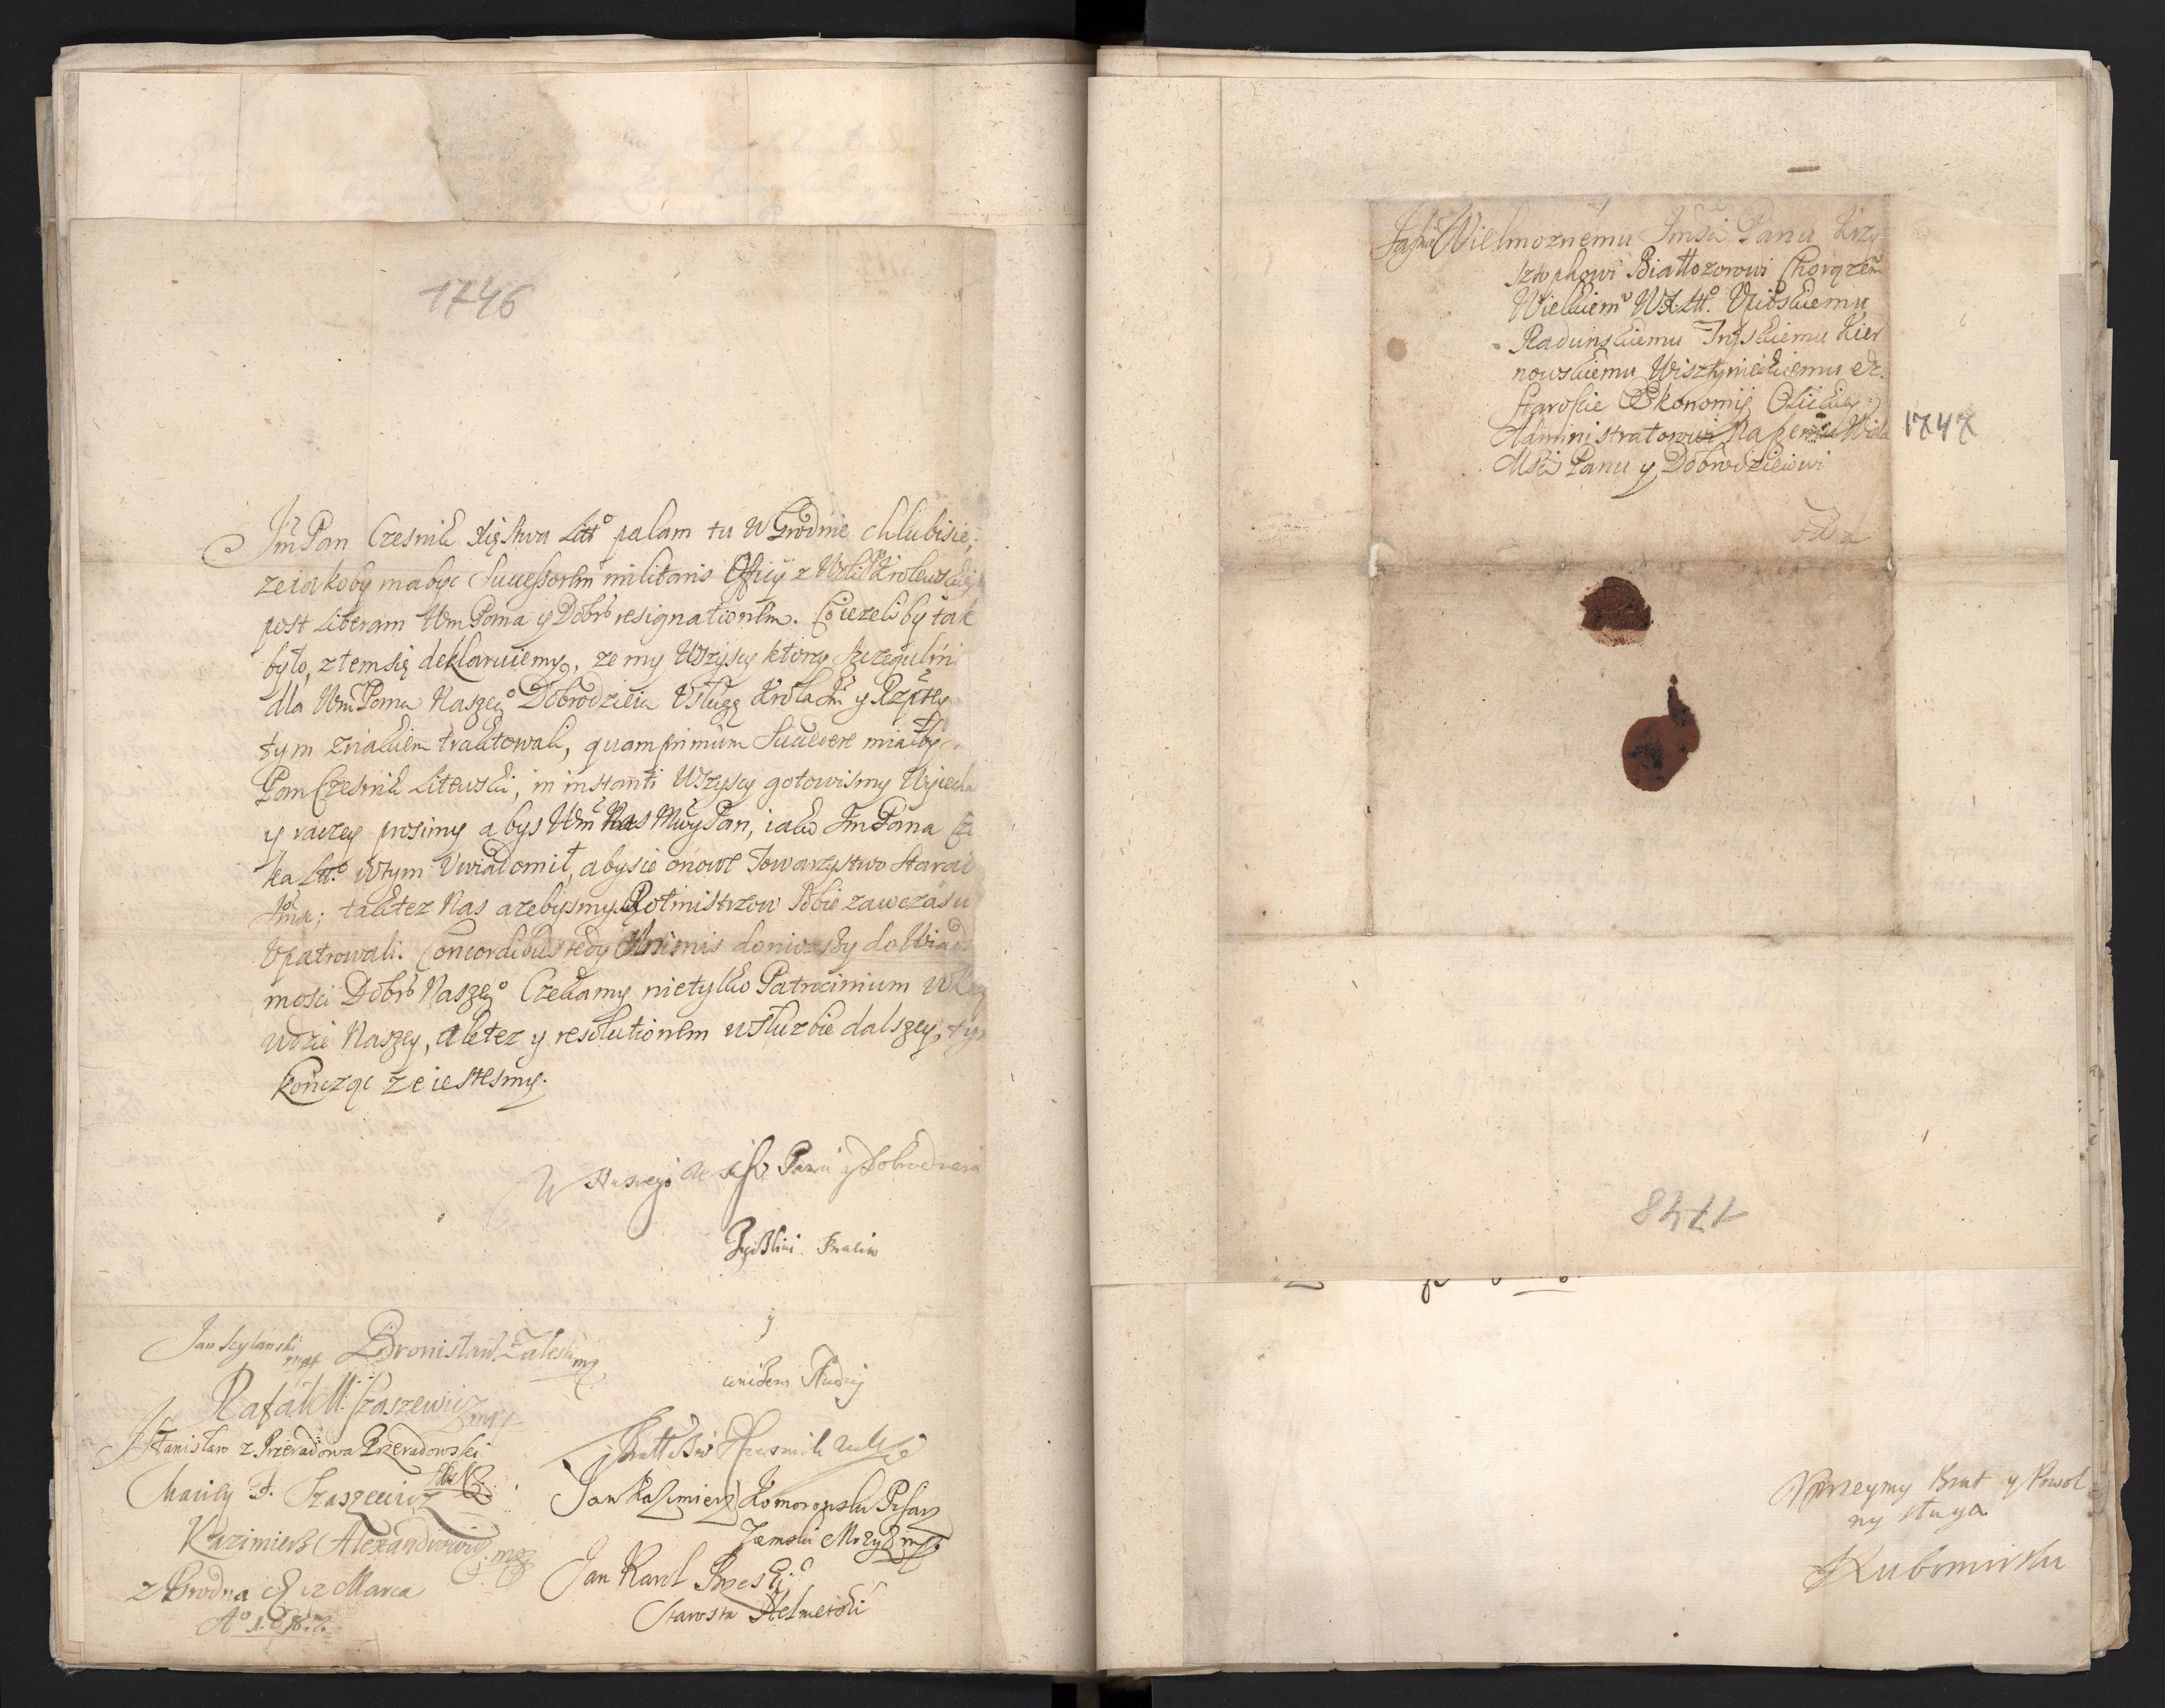 1746
Jm̃ Pan Czesnik Xięstwa Litto palam tu w Grodnie chlubisię,
zeiakoby mabyc Successorem militaris Officij z Woli Krolewskiej
post Liberam Wm Pana y Dobr resignationem. Co iezeliby tak
było, ztemsię deklaruiemy, ze my Wszyscy ktorzy szczegulnie
dla Wm Pana Naszego Dobrodzieia Usługę Krola Jm y Rzptey
tym znakiem traktowali, quamprimum Succedere miałby
Pan Czesnik Litewski, in instanti Wszyscy gotowismy Wyiecha
y raczey prosimy abys Wm Nas Mwoy Pan, iako Jm Pana Cze
ka Litto. Wtym Uwiadomił, abysie onowe Towarzystwo starał
Jmć; taktez Nas azebysmy Rotmistrzow sobie zawczasu
Upatrowali. Concordibus tedy Animis donioszszy do Wiado
mosci Dobr Naszego Czekamy nietylko Patrocinium w Krzy
wdzie Naszey, aletez y resolutionem w Służbie dalszey, tym
kończąc ze iestesmy.
W Naszego Pana y Dobrodzieia
Bracia
y
uniżeni Słudzy
Jan Szylanski mpp Bronisław Zaleski mp
Rafał M. Szaszewicz mpp
Stanisław z Przeradowa Przeradowski
Maurycy F. Szaszewicz
Kazimierz Alexandrowicz mp
z Grodna d 12 Marca
Jan Kazimierz Komorowski Pisarz
Ziemski Mozyr mpp
Jan Karol
Starosta Helmetski
Jaśnie Wielmoznemu Jmści Panu Krzy
sztophowi Białłozorowi Chorązem
Wielkiemu W.X.Litto. Upitskiemu
Radunskiemu Jnskiemu Kier
nowskiemu Wisztynieckiemu etc.
Staroście Ekonomij Olickiey
Administratorowi Naszemu Wielce
Mści Panu y Dobrodzieiowi
1747
1748
Uprzeymy Brat y Powol
ny sługa
Lubomirski